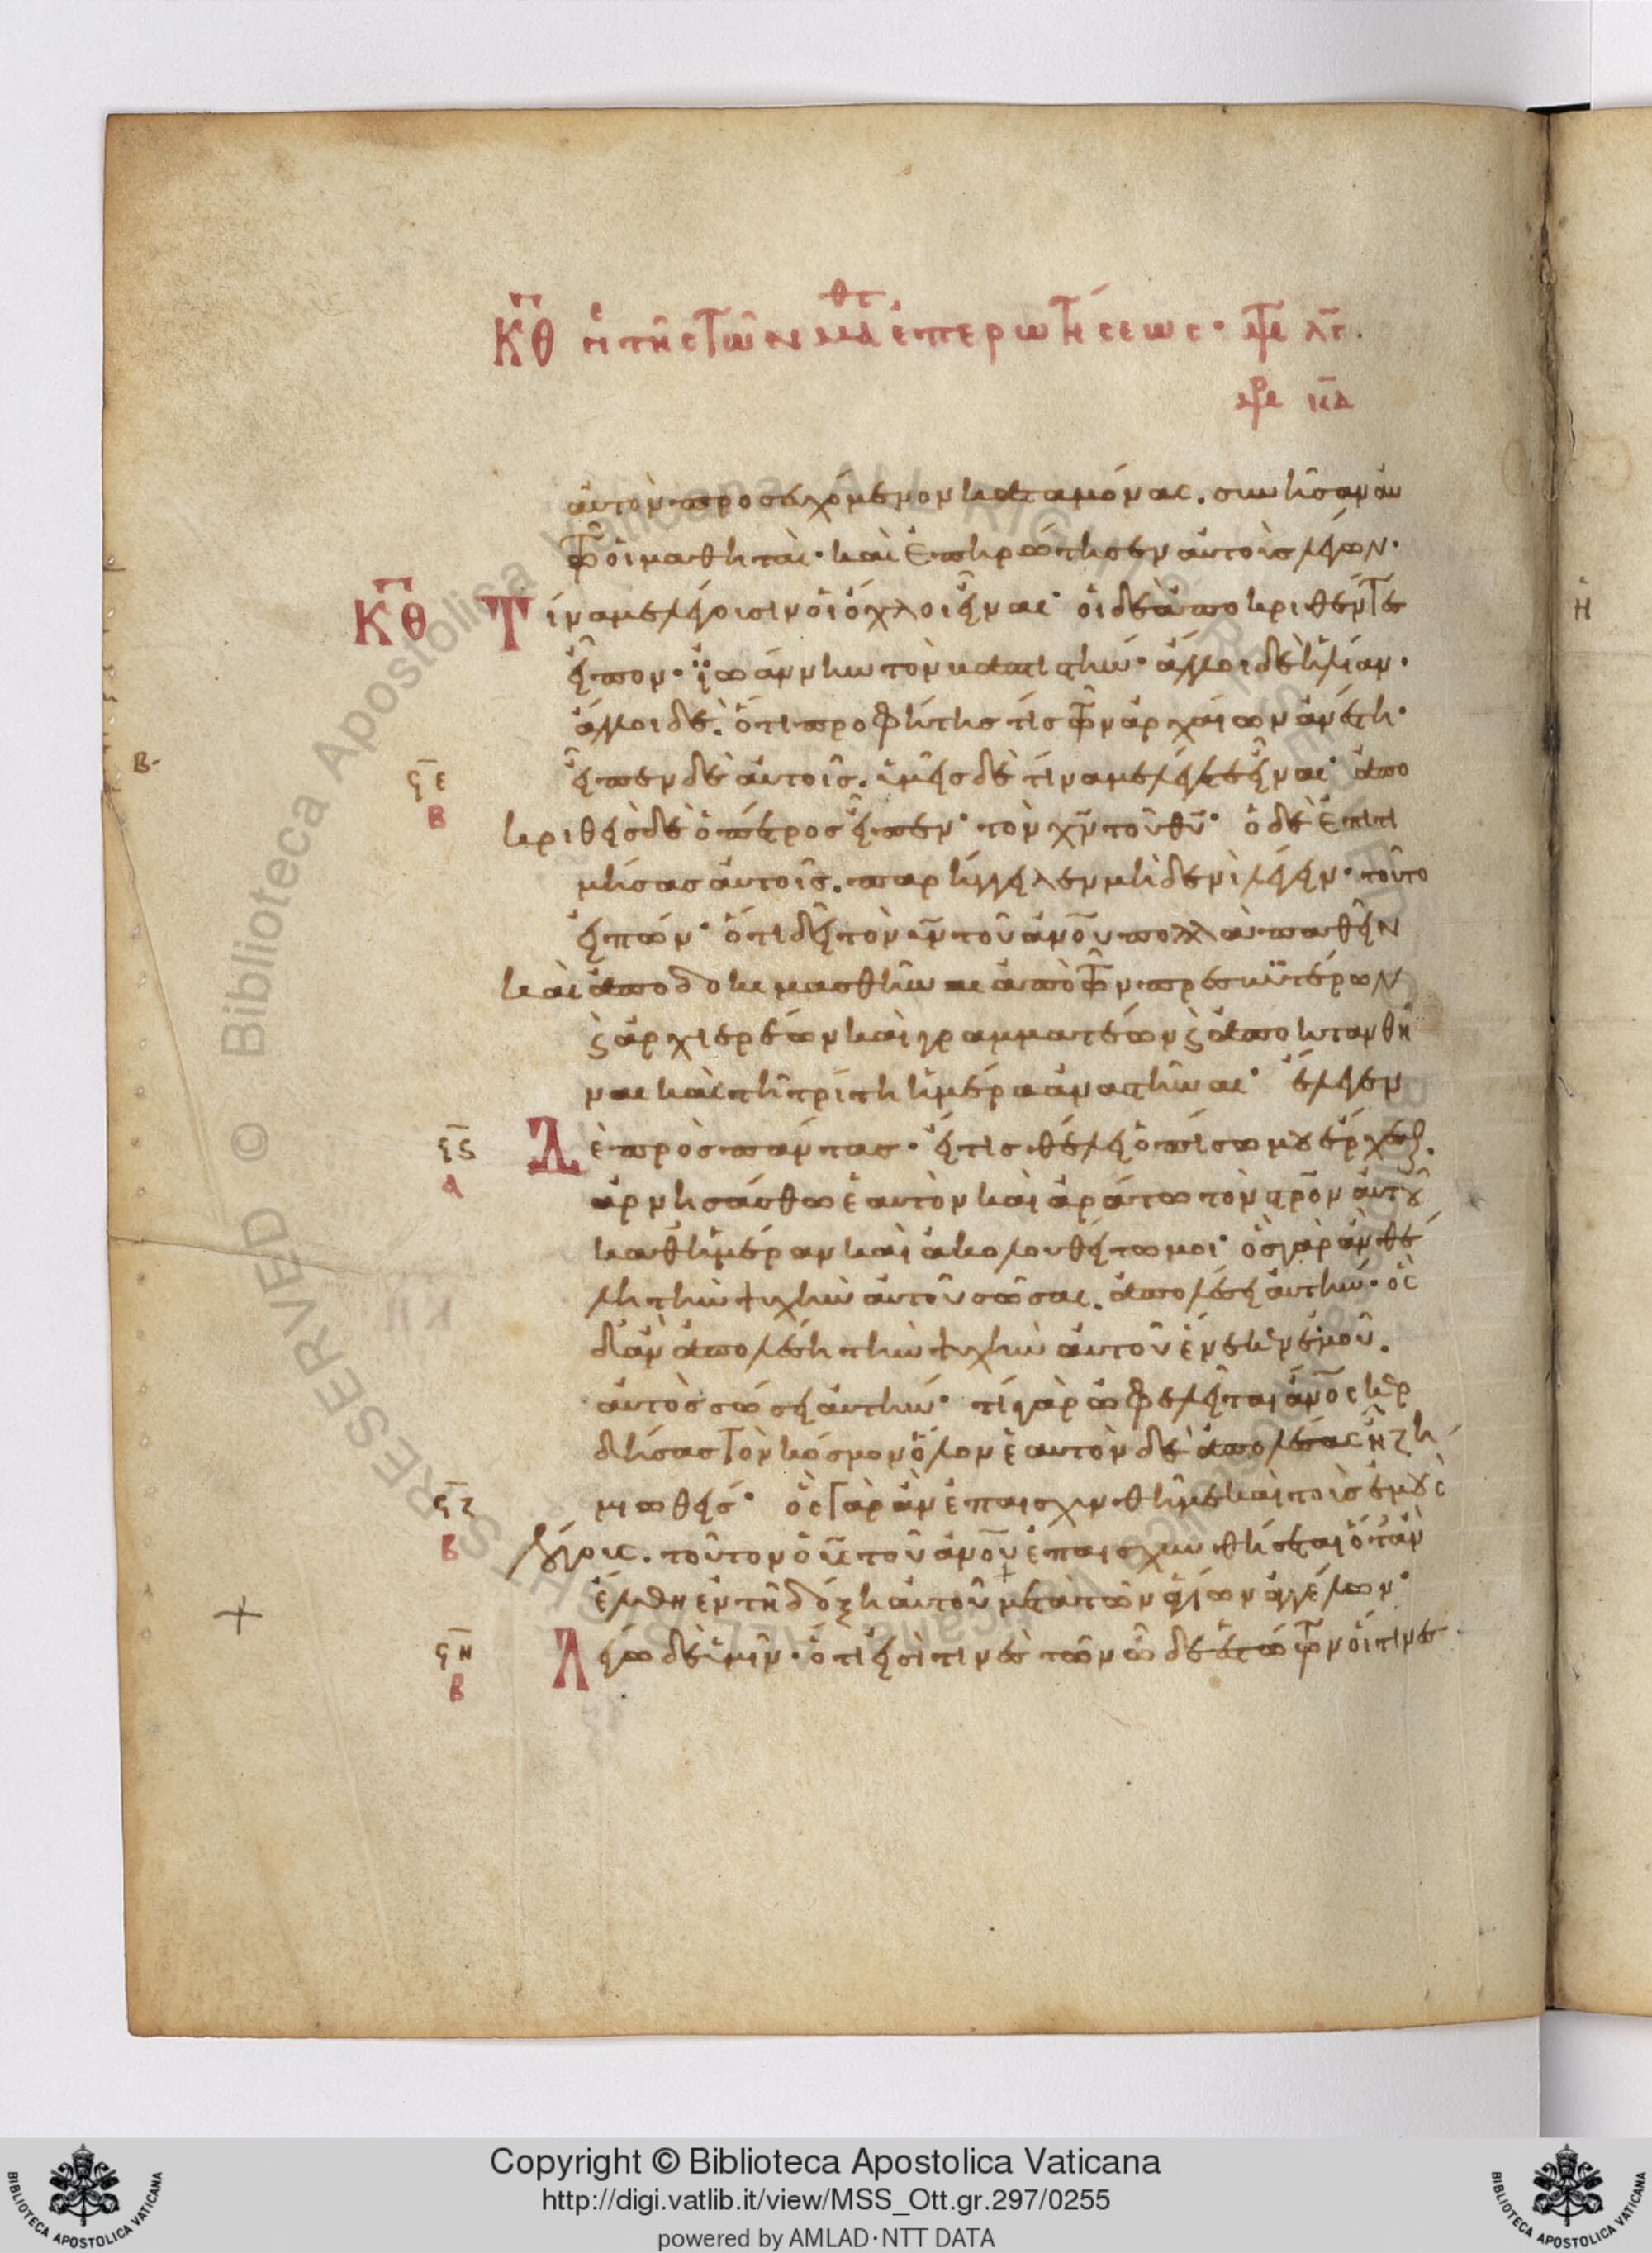 ΚΘ περι της των μαθτ επερωτήσεως·
αυτὸν προσευχόμενον καταμόνας. συνῆσαν αυ
τῶ οἱ μαθηταί· καὶ ἐπηρώτησεν αυτοὺς λέγων·
ΚΘ Τίνα με λέγουσιν οἱ ὄχλοι εἶναι· οἱ δὲ ἀποκριθέντες
εἶπον· ἰωάννην τὸν βαπτιστήν· ἄλλοι δὲ ἠλίαν·
ἄλλοι δὲ. ὅτι προφήτης τίς τῶν ἀρχαίων ἀνέστη·
ϟε εἶπεν δὲ αὐτοῖς. ὑμεῖς δὲ τίνα με λέγετε εἶναι· ἀπο
Β
κριθεὶς δὲ ὁ πέτρος εἶπεν· τὸν χν τοῦ θυ· ὁ δὲ ἐπιτι
μήσας αὐτοῖς. παρήγγειλεν μηδενὶ λέγειν· τοῦτο
εἰπών· ὅτι δεῖ τὸν υν τοῦ ανου πολλὰ παθεῖν
καὶ ἀποδοκιμασθῆναι ἀπὸ τῶν πρεσβυτέρων
ϗ ἀρχιερέων καὶ γραμματέων ϗ ἀποκτανθῆ
ναι καὶ τῆ τρίτη ἡμέρα ἀναστῆναι· ἔλεγεν
ϟϛ Δὲ πρὸς πάντας· εἴτις θέλει ὀπίσω μου ἔρχεσθαι.
Α
ἀρνησάσθω ἑαυτὸν καὶ ἀράτω τὸν στρον αὐτοῦ
καθημέραν καὶ ἀκολουθείτω μοι· ὃς γὰρ ἂν θέ
λη τὴν ψυχὴν αὐτοῦ σῶσαι. ἀπολέσει αὐτήν· ὃς
δ'ἂν ἀπολέση τὴν ψυχὴν αὐτοῦ ἕνεκεν ἐμοῦ.
αὐτὸς σώσει αὐτήν· τί γὰρ ὠφελεῖται ανος κερ
δήσας τὸν κόσμον ὅλον ἑαυτὸν δὲ ἀπολέσας ἢ ζη
ϟζ μιωθείς· ὃς γὰρ ἂν ἐπαισχυνθῆ με καὶ τοὺς ἐμοὺς
Β
λόγους. τοῦτον ὁ υς τοῦ ανου ἐπαισχυνθήσεται ὅταν
ἔλθη ἐν τῆ δόξη αὐτοῦ μετὰ τῶν ἁγίων ἀγγέλων·
ϟη Λέγω δὲ ὑμῖν· ὅτι εἰσὶ τινὲς τῶν ὧδε ἑστώτων οἵτινες
Β
Copyright © Biblioteca Apostolica Vaticana
http://digi.vatlib.it/view/MSS_Ott.gr.297/0255
powered by AMLAD·NTT DATA